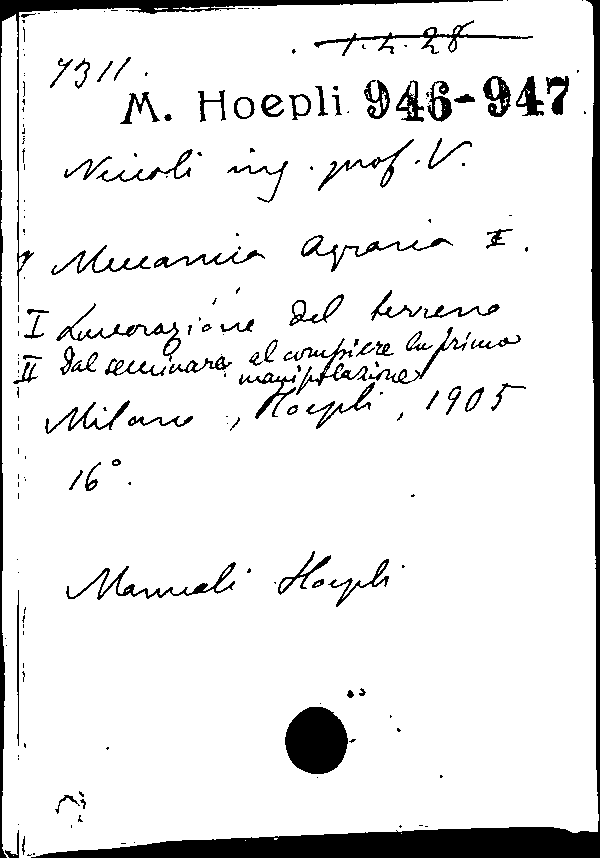 1.4.28
7311.
M. Hoepli 946-947
Niccoli ing. prof. V.
Meccanica Agraria I.
I Lavorazione del terreno
II Dal seminare al compiere la prima
manipolazione
Milano, Hoepli, 1905
16°.
Manuali Hoepli